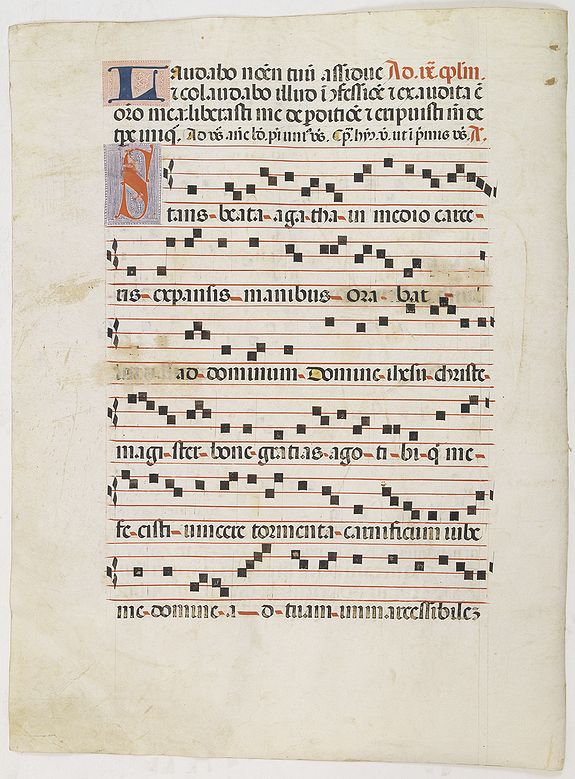 Laudabo nōēn tuū assidue Ad. ix. cplm.
⁊ colaudabo illud ī ꝯfessiōe ⁊ exaudita ē
orō mea: liberasti me de ꝑditiōe ⁊ eripuisti m̄ de
tꝑe iniq̄.
Stans - beata - aga - tha - in medio carce -
ris - expansis - manibus - ora - bat -
ad - dominum - Domine - ihesu - christe -
magi - ster - bone - gratias - ago - ti - bi - q̄ me -
fe - cisti - uincere tormenta - carnificum iube
me - domine - a - d - tuam - immarcessibilez